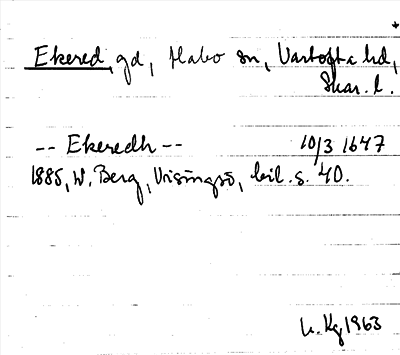 Ekered, gd, Habo sn, Vartofta hd,
Skar. l.
-- Ekeredh -- 10/3 1647
1885, W. Berg, Visingsö, bil. s. 40.
1963